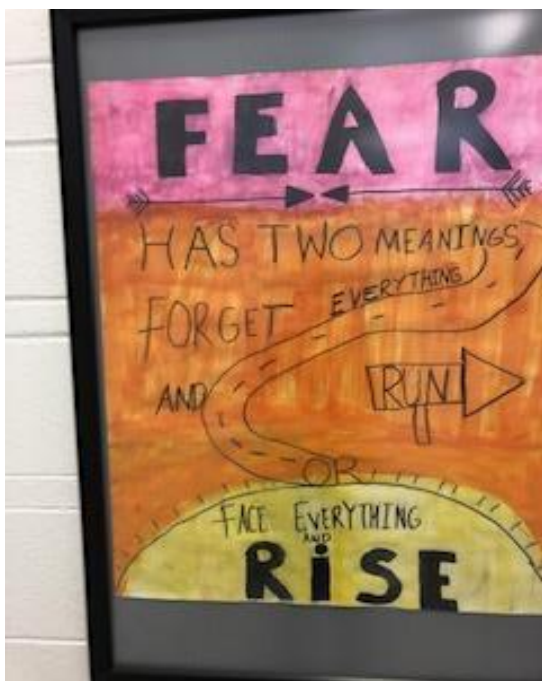 FEAR
HAS TWO MEANINGS,
FORGET EVERYTHING
AND RUN
OR
FACE EVERYTHING
AND
RiSE